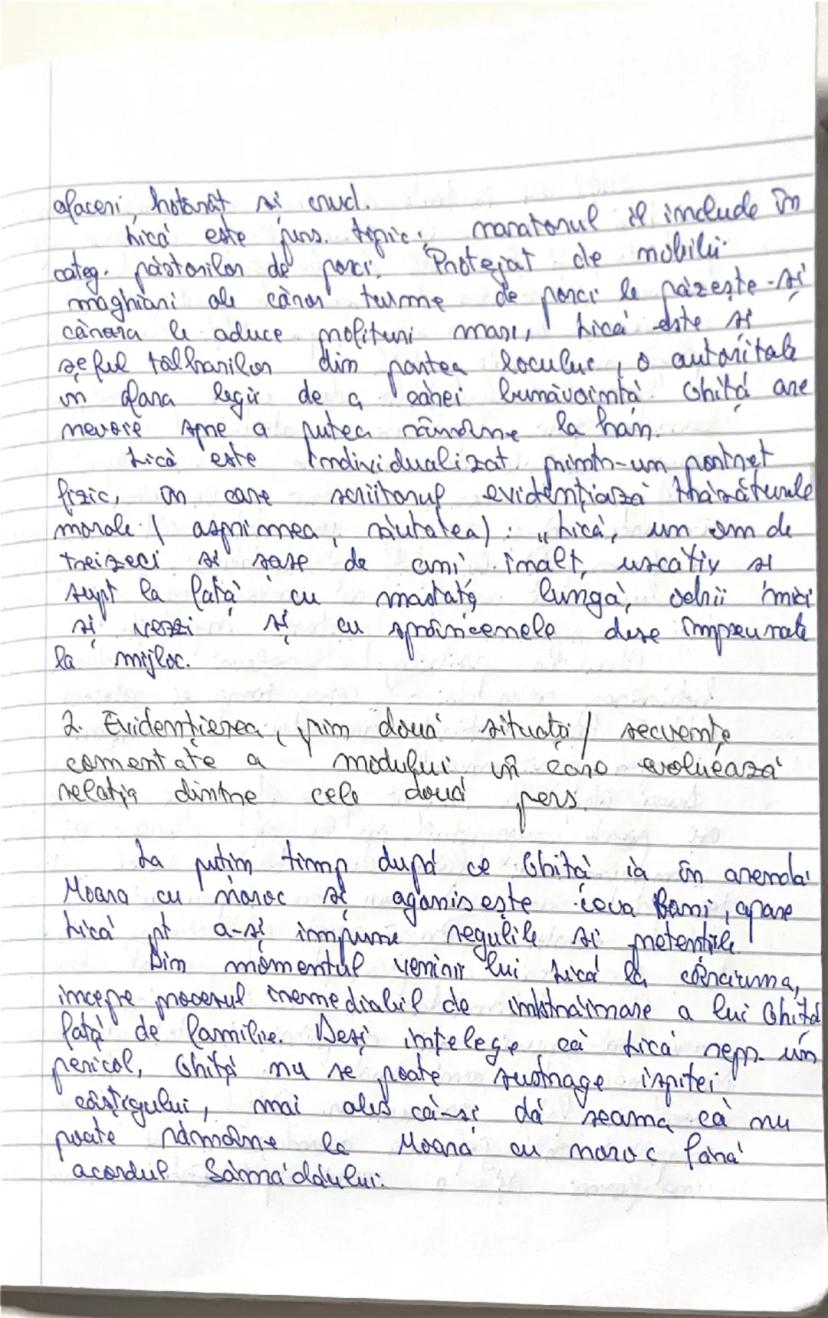 afaceri, hotărât și crud.
Lică este pers. tipic; naratorul îl include în
categ. păstorilor de porci. Protejat de nobilii
maghiari ale căror turme de porci le păzește și
cărora le aduce profituri mari, Lică este și
șeful tâlharilor din partea locului, o autoritate
în afara legii de a cărei bunăvoință Ghiță are
nevoie spre a putea rămâne la han.
Lică este individualizat printr-un portret
fizic, în care scriitorul evidențiază trăsăturile
morale (asprimea, răutatea): „Lică, un om de
treizeci și șase de ani înalt, uscățiv și
supt la față cu mustață lungă, ochii mici
și verzi și cu sprâncenele dese împreunate
la mijloc.
2. Evidențierea, prin două situații / secvențe
comentate a modului în care evoluează
relația dintre cele două pers.
La puțin timp după ce Ghiță ia în arendă
Moara cu noroc și agonisește ceva bani, apare
Lică pt a-și impune regulile și pretențiile
Din momentul venirii lui Lică la cârciuma,
începe procesul iremediabil de înstrăinare a lui Ghiță
față de familie. Deși înțelege că Lică repr. un
pericol, Ghiță nu se poate sustrage ispitei
câștigului, mai ales că-și dă seama că nu
poate rămâne la Moară cu noroc fără
acordul Sămădăului.